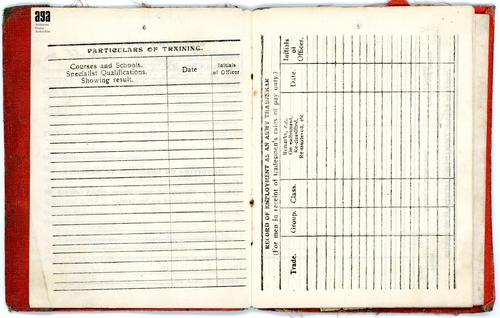 aga
6
PARTICULARS OF TRAINING.
Courses and Schools.
Specialist Qualifications.
Showing result.
Date
Initials
of Officer
5
RECORD OF EMPLOYMENT AS AN ARMY TRADESMAN
(For men in receipt of tradesmen's rates of pay only.)
Trade.
Group.
Class.
Remarks, e.g.
On enlistment,
Re-classified,
Re-mustered, etc
Date.
Initials
of
Officer.